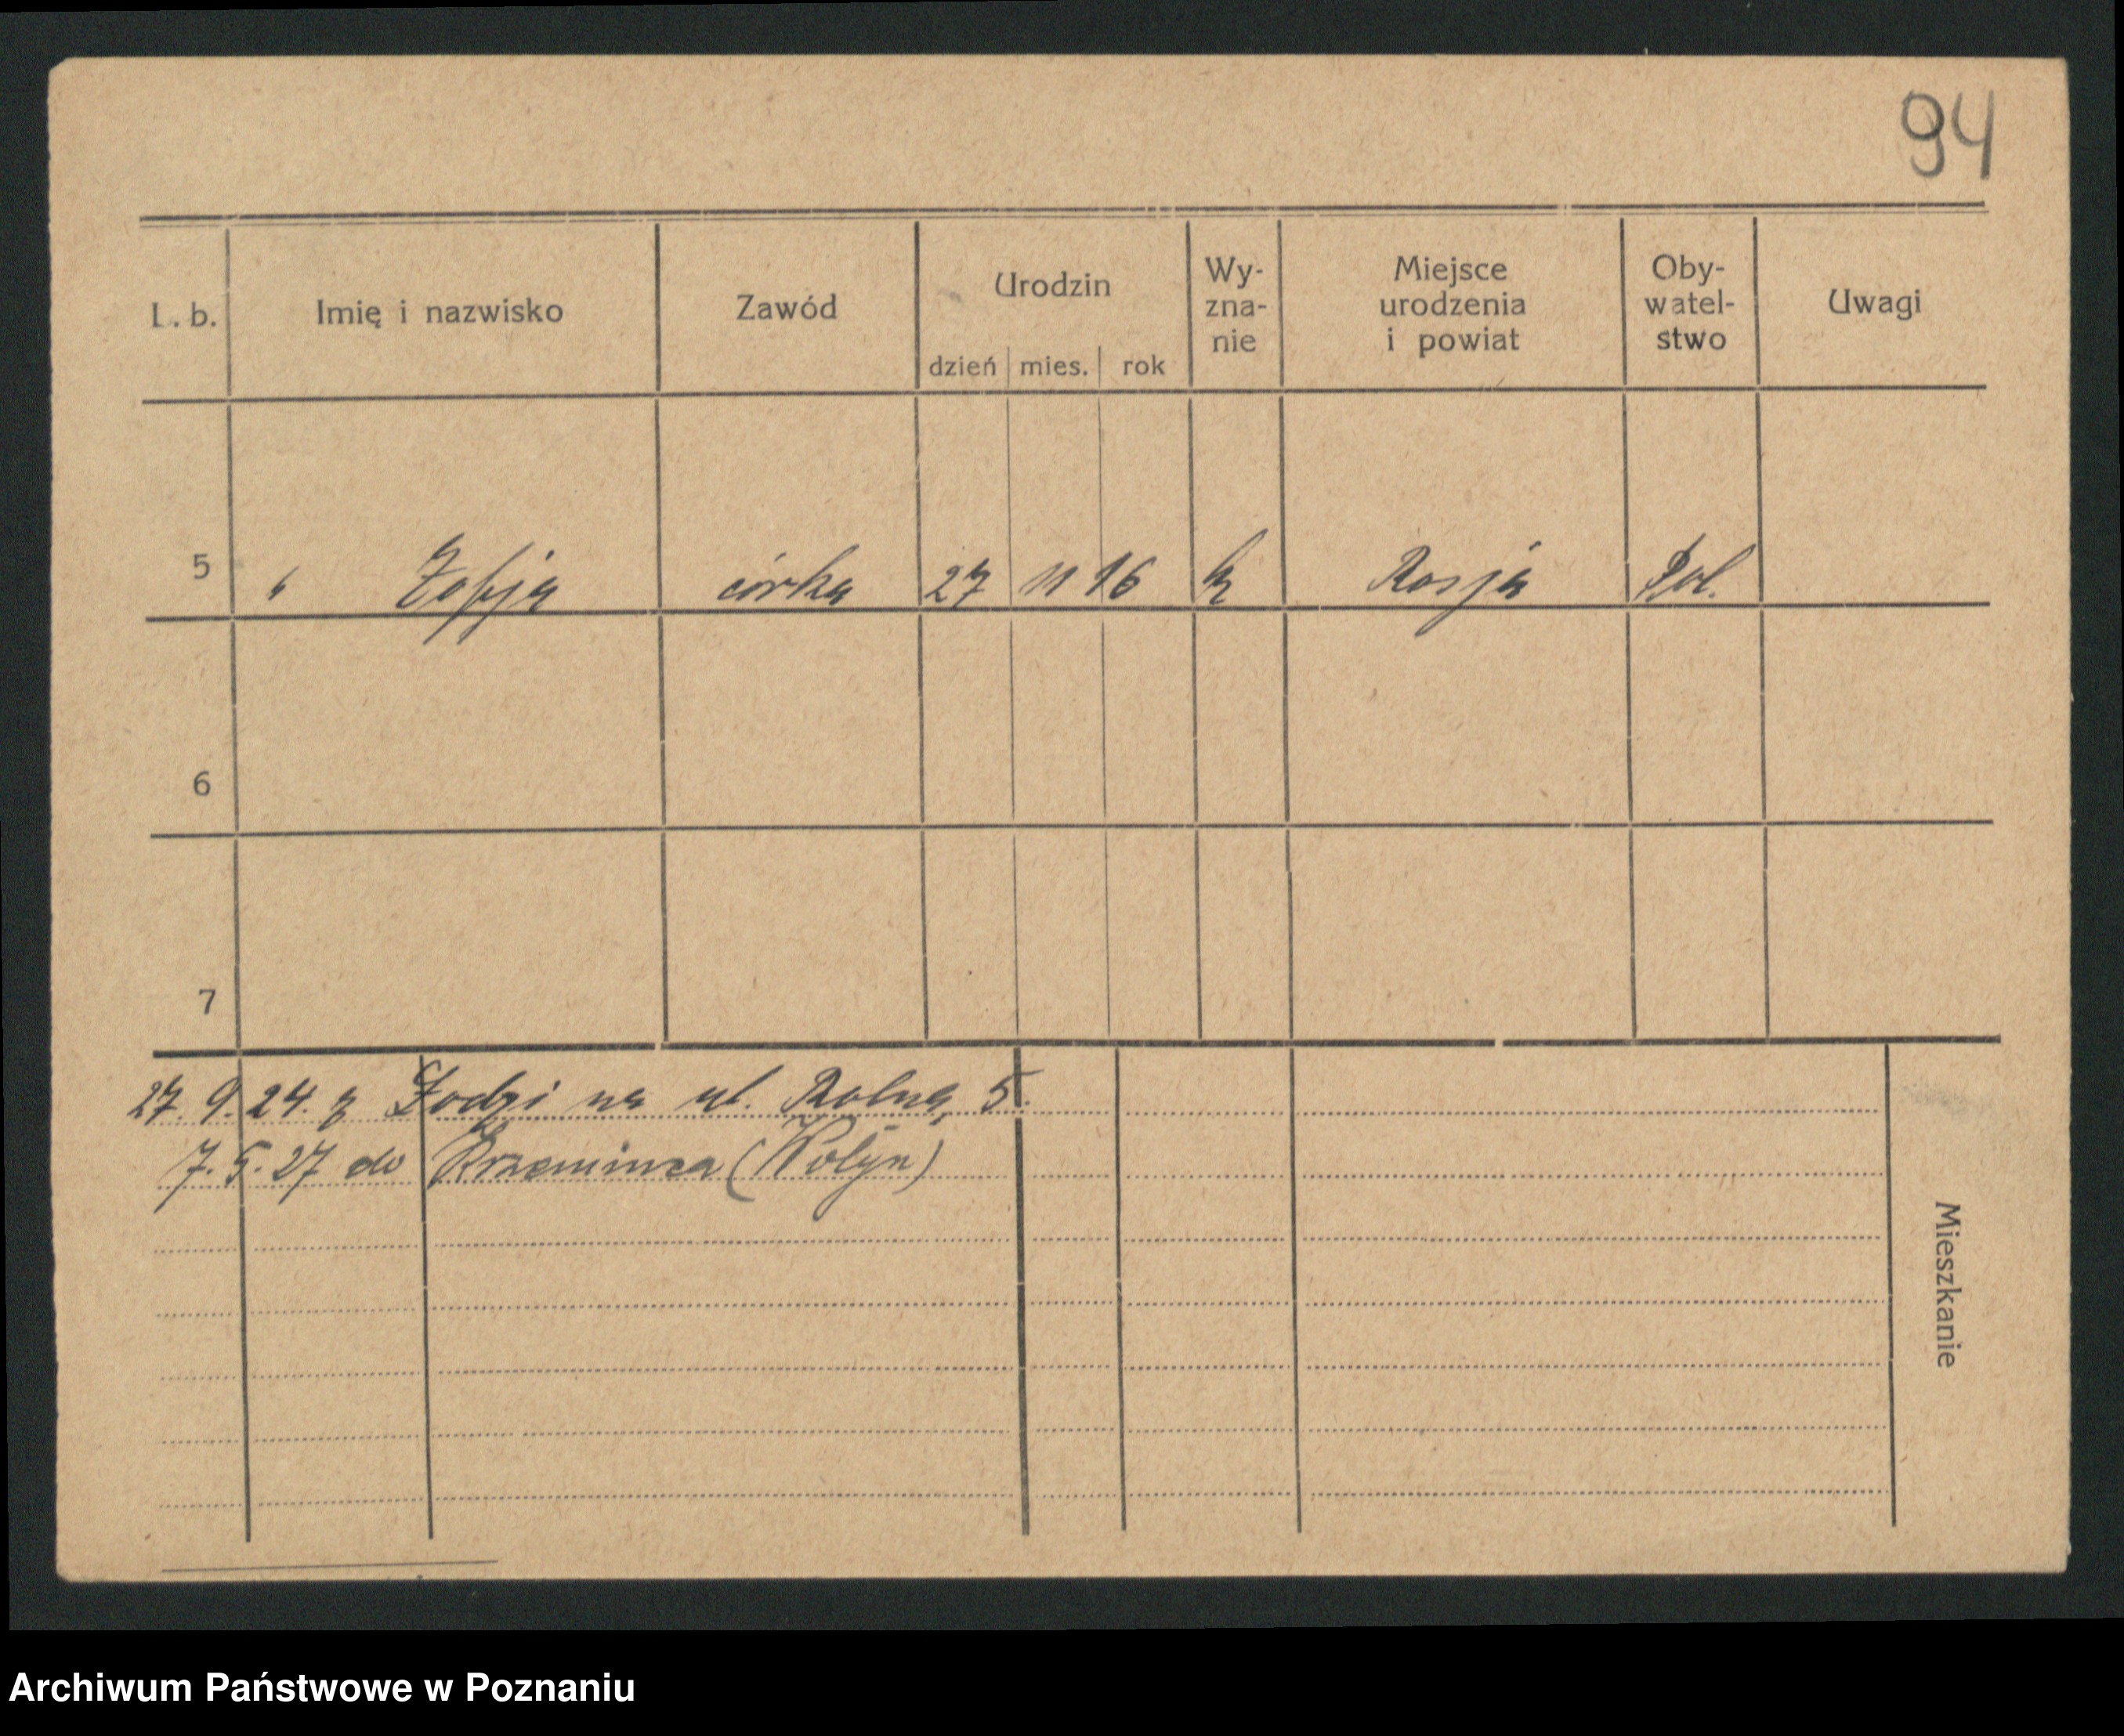 94
L. b. Imię i nazwisko Zawód Urodzin dzień mies. rok Wy-zna-nie Miejsce urodzenia i powiat Oby-watel-stwo Uwagi
5 " Zofja córka 27 11 16 k Rosja Pol.
6
7
27. 9. 24. z Łodzi na ul. Rolną 5.
7. 5. 27 do Krzemieńca (Wołyń)
Mieszkanie
Archiwum Państwowe w Poznaniu